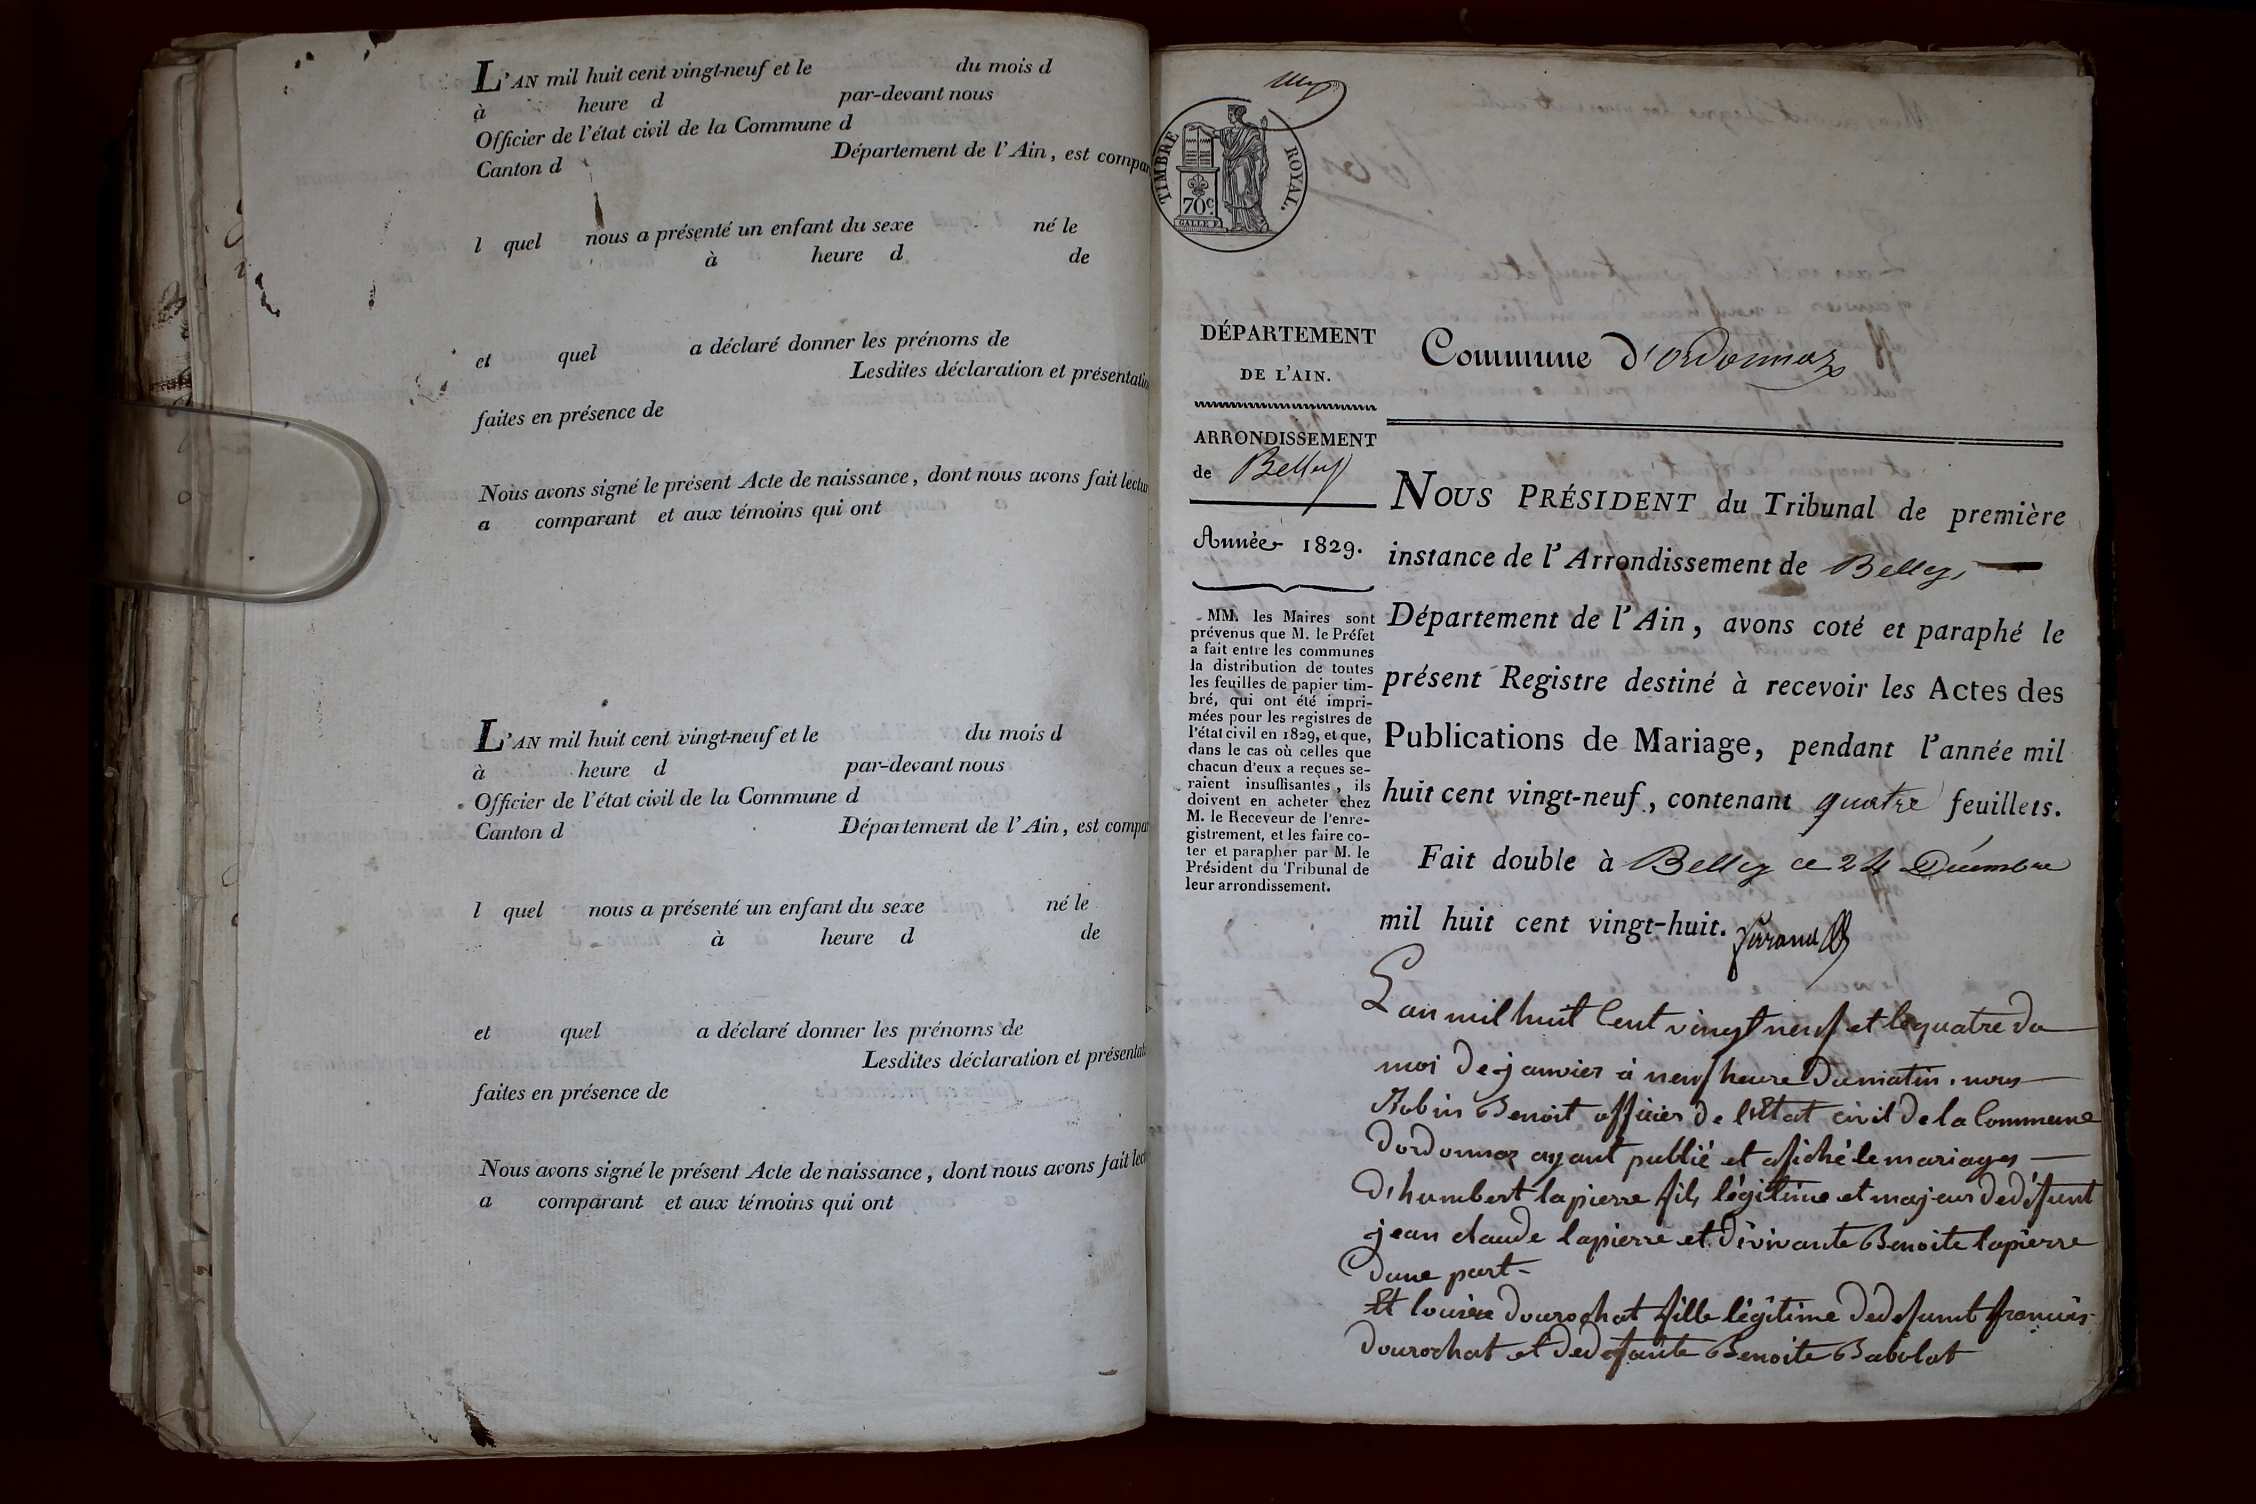 L'AN mil huit cent vingt-neuf et le du mois d
à heure d par-devant nous
Officier de l'état civil de la Commune d
Canton d Département de l'Ain, est compar
l quel nous a présenté un enfant du sexe né le
à heure d de
et quel a déclaré donner les prénoms de
Lesdites déclaration et présentatio
faites en présence de
Nous avons signé le présent Acte de naissance, dont nous avons fait lectur
a comparant et aux témoins qui ont
L'AN mil huit cent vingt-neuf et le du mois d
à heure d par-devant nous
Officier de l'état civil de la Commune d
Canton d Département de l'Ain, est compar
l quel nous a présenté un enfant du sexe né le
à heure d de
et quel a déclaré donner les prénoms de
Lesdites déclaration et présentati
faites en présence de
Nous avons signé le présent Acte de naissance, dont nous avons fait lec
a comparant et aux témoins qui ont
TIMBRE ROYAL.
70c
DÉPARTEMENT
DE L'AIN.
ARRONDISSEMENT
de Belley
Année 1829.
MM. les Maires sont
prévenus que M. le Préfet
a fait entre les communes
la distribution de toutes
les feuilles de papier tim-
bré, qui ont été impri-
mées pour les registres de
l'état civil en 1829, et que,
dans le cas où celles que
chacun d'eux a reçues se-
raient insuffisantes, ils
doivent en acheter chez
M. le Receveur de l'enre-
gistrement, et les faire co-
ter et parapher par M. le
Président du Tribunal de
leur arrondissement.
Commune d'ordonnaz
NOUS PRÉSIDENT du Tribunal de première
instance de l'Arrondissement de Belley
Département de l'Ain, avons coté et paraphé le
présent Registre destiné à recevoir les Actes des
Publications de Mariage, pendant l'année mil
huit cent vingt-neuf, contenant quatre feuillets.
Fait double à Belley ce 24 Décembre
mil huit cent vingt-huit.
L'an mil huit Cent vingt neuf et le quatre du
moi de janvier à neuf heure du matin. nous
Robin Benoit officier de l'Etat civil de la Commune
dordonnaz ayant publié et afiché le mariages
D'humbert lapierre fils légitime et majeur de défunt
jean claude lapierre et de vivante Benoite lapierre
dune part
Et louise dourochat fille légitime de defunt francois
dourochat et de defante Benoite Babolat